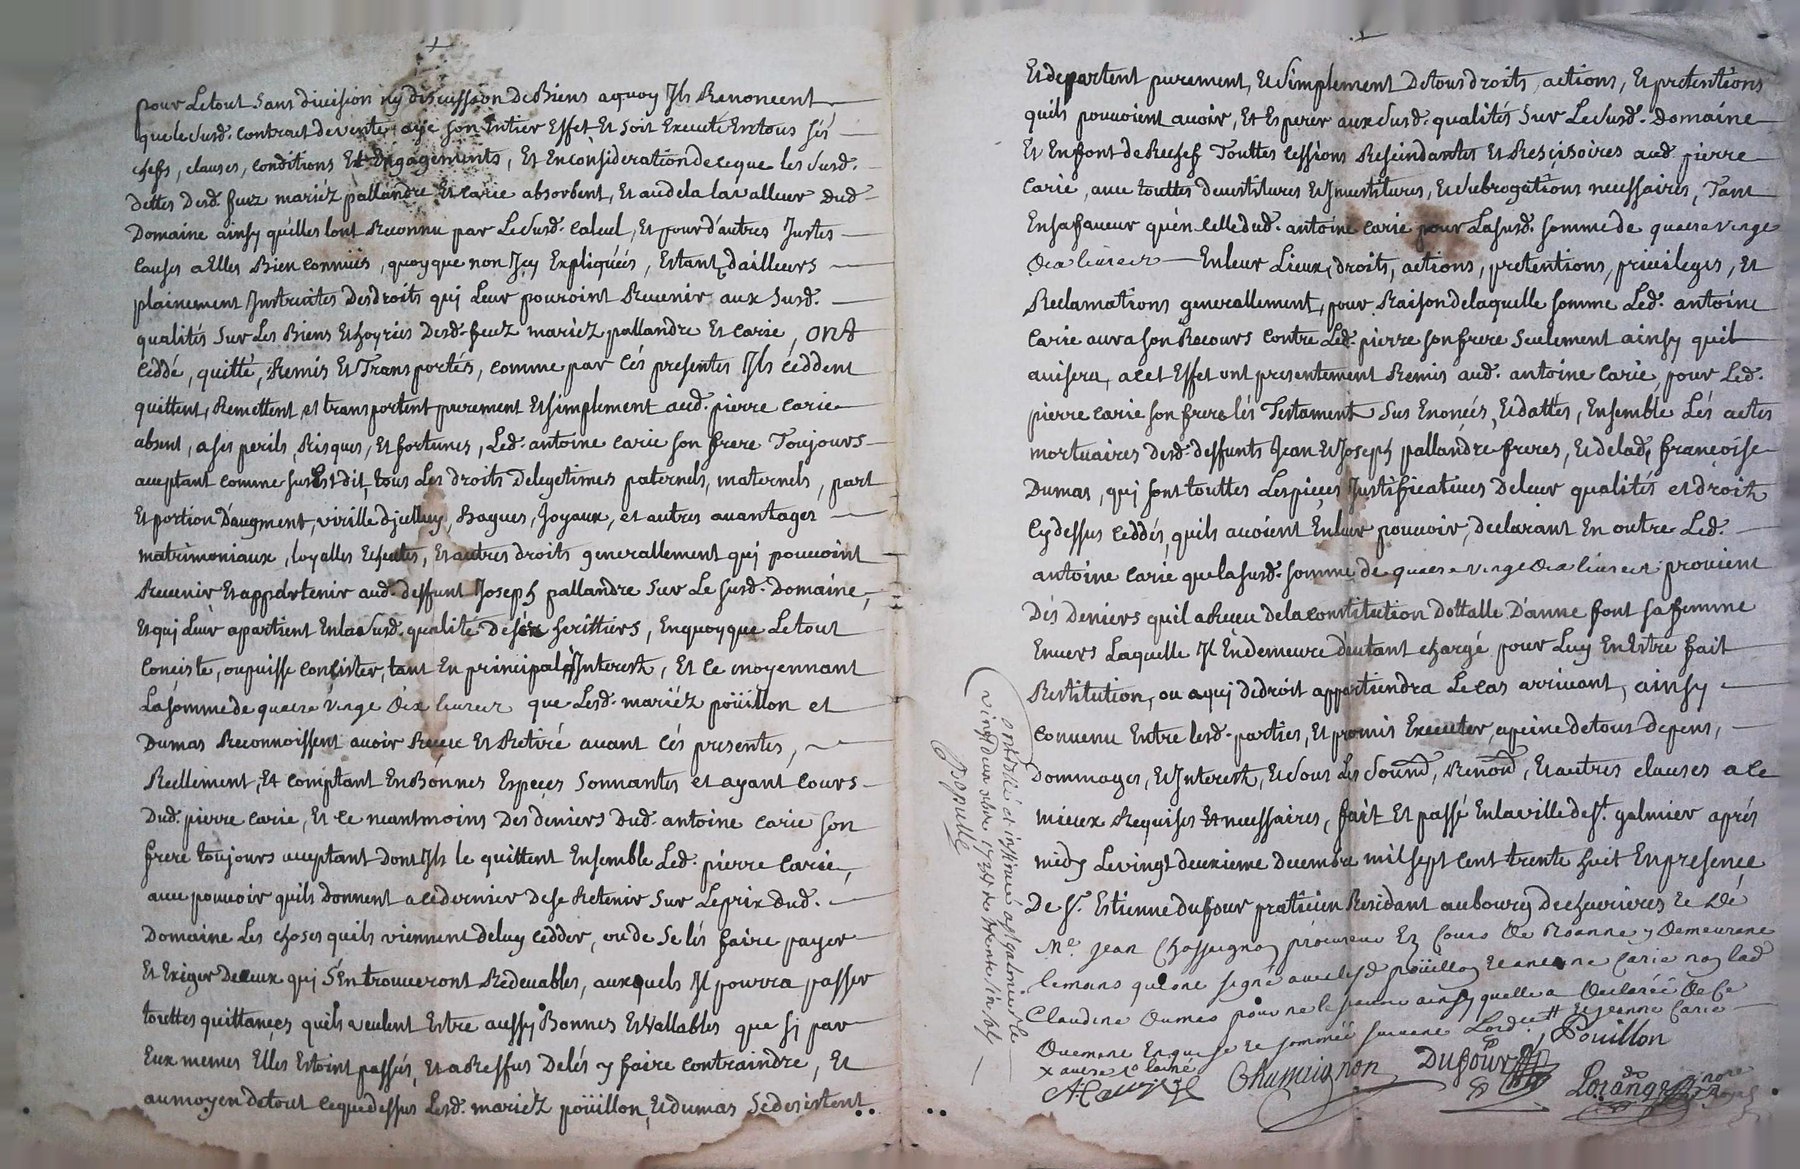 pour Letout sans division ny discussion de Biens aquoy Ils Renoncent
que le susd. contract de vente aye son Entier Effet Et soit Executé En tous sés
chefs, clauses, conditions Et Engagements, Et En considération de ce que les susd.
dettes desd. feuz mariéz pallandre Et carie absorbent, Et audela la valleur dud.
Domaine ainsy qu'elles l'ont Reconnu par Le susd. calcul, Et pour d'autres Justes
causes a Elles Bien connües, quoyque non Icy Expliquéés, Estant d'ailleurs
plainement Instruites Des droits quj Leur pouroint Revenir aux susd.
qualités sur Les Biens Et hoyries desd. feuz mariéz pallandre Et carie, ont
céddé, quitté, Remis Et Transportés, comme par cés presentes Ils céddent
quittent, Remettent, et transportent purement Et simplement aud. pierre carie
absent, a ses perils, Risques, Et fortunes, Led. antoine carie son frere Toujours
aceptant comme susEst dit, tous Les droits De legetimes paternels, maternels, part
Et portion D'augment, virille d'jcelluy, Bagues, Joyaux, et autres auantages
matrimoniaux, loyalles Echutes, Et autres droits generallement quj pouuoint
Revenir Et appartenir aud. deffunt Joseph pallandre sur Le susd. Domaine,
Et quj Leur apartient En la susd. qualité de ses herittiers, En quoy que Le tout
conciste, ou puisse concister, tant En principal qu'Interest, Et ce moyennant
La somme de quatre vingt dix livres que Lesd. mariéz poüillon et
Dumas Reconnoissent auoir Reçeu Et Retiré auant cés presentes,
Réellement, Et comptant En Bonnes Especes sonnantes et ayant cours
Dud. pierre carie, Et ce neantmoins Des deniers dud. antoine carie son
frere toujours aceptant dont Ils le quittent Ensemble Led. pierre carie,
auec pouuoir quils donnent a ce dernier de se Retenir sur Le prix dud.
Domaine Les choses quils viennent de luy cedder, ou de se lés faire payer
Et Exiger De ceux quj s'En trouueront Redeuables, auxquels Il pourra passer
touttes quittances quils veulent Estre aussy Bonnes Et Vallables que sj par
Eux memes Elles Estoint passés, Et a Reffus De lés y faire contraindre, Et
aumoyen de tout ce que dessus Lesd. mariéz poüillon, Et dumas se desistent
Et departent purement, Et simplement De tous droits, actions, Et pretentions
quils pouuoient auoir, Et Esperer aux susd. qualités sur Le susd. Domaine
Et En font de Rechef Touttes cessions Rescindantes Et Rescisoires aud. pierre
carie, auec touttes deuestitures Et Inuestitures, Et subrogations necessaires, Tant
En sa faueur qu'en celle dud. antoine carie pour La susd. somme de quatre vingt
dix livres En leur Lieux, droits, actions, pretentions, priuileges, Et
Reclamations generallement, pour Raison de laquelle somme Led. antoine
carie aura son Recours contre Led. pierre son frere seulement ainsy quil
auisera, a cet Effet ont presentement Remis aud. antoine carie, pour Led.
pierre carie son frere lés Testament sus Enoncés, Et dattés, Ensemble Lés actes
mortuaires desd. deffunts Jean Et Joseph pallandre freres, Et de lad. françoise
Dumas, quj sont touttes Les pieces Justificatiues De leur qualités et droits
Cydessus ceddés, quils auoient En leur pouuoir, declarant En outre Led.
antoine carie que la susd. somme de quatre vingt dix livres prouient
Dés Deniers quil a Receu de la constitution dottalle D'anne font sa femme
Enuers Laquelle Il En demeure d'autant chargé pour Luy En Estre fait
Restitution, ou a quj de droit appartiendra Le cas arriuant, ainsy
conuenu Entre lesd. parties, Et promis Executer, apeine de tous depens,
Dommages, Et Interest, Et sous Les soumd, Renond, Et autres clauses a ce
mieux Requises Et necessaires, fait Et passé En la ville de St. galmier aprés
midy Le vingt deuxieme Decembre mil sept cent trente huit En presence
De Sr. Estienne dufour praticien Residant au bourg de cheurieres Et de
Me. Jean Chassaignon procureur Ez Cours de Roanne y demeurant
temoins qui ont signé auec led. poüillon et antoine carie non lad.
Claudine Dumas pour ne le sauoir ainsy quelle a declarée de ce
Duement Enquise et sommée suiuant Lord.
Pouillon
A Carry
Chassaignon
Dufour
Lorange
notre
Royal
Controllé et insinué a St galmier le
vingt deux xbre 1738
Populle